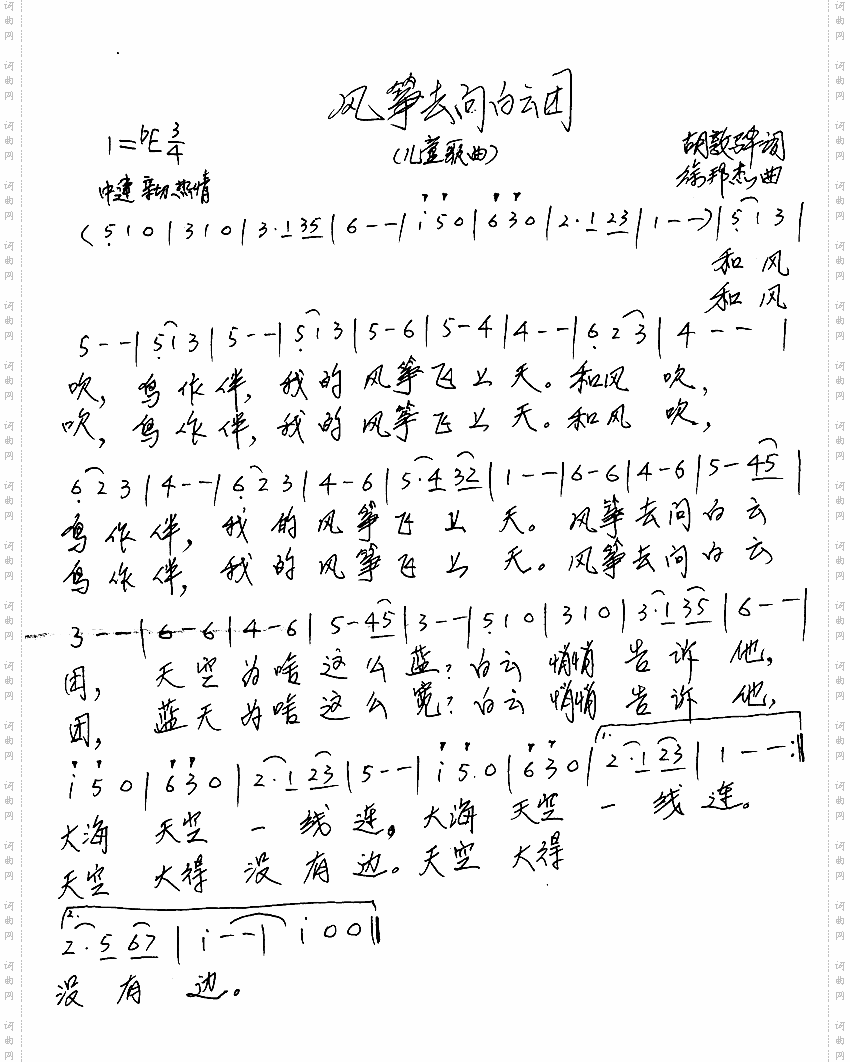 风筝去问白云团
1=ᵇE 3/4
(儿童歌曲)
胡敦骅词
中速 亲切 热情
徐邦杰曲
(5̣ 1 0 | 3 1 0 | 3·1 35 | 6 - - | i 5 0 | 6 3 0 | 2·1 23 | 1 - -) | 5̣ 1 3 |
和 风
和 风
5 - - | 5̣ 1 3 | 5 - - | 5̣ 1 3 | 5 - 6 | 5 - 4 | 4 - - | 6̣ 2 3 | 4 - - |
吹, 鸟 作 伴, 我 的 风 筝 飞 上 天。和风 吹,
吹, 鸟 作 伴, 我 的 风 筝 飞 上 天。和风 吹,
6̣ 2 3 | 4 - - | 6̣ 2 3 | 4 - 6 | 5·4 32 | 1 - - | 6 - 6 | 4 - 6 | 5 - 45 |
鸟 作 伴, 我 的 风 筝 飞 上 天。风筝去问白云
鸟 作 伴, 我 的 风 筝 飞 上 天。风筝去问白云
3 - - | 6 - 6 | 4 - 6 | 5 - 45 | 3 - - | 5̣ 1 0 | 3 1 0 | 3·1 35 | 6 - - |
团, 天 空 为 啥 这 么 蓝? 白云 悄悄 告 诉 他,
团, 蓝 天 为 啥 这 么 宽? 白云 悄悄 告 诉 他,
i 5 0 | 6 3 0 | 2·1 23 | 5 - - | i 5 0 | 6 3 0 | 1. 2·1 23 | 1 - - :||
大海 天空 一 线 连。大海 天空 一 线 连。
天空 大得 没 有 边。天空 大得
2. 2·5 67 | i - - | i 0 0 ||
没 有 边。
词曲网